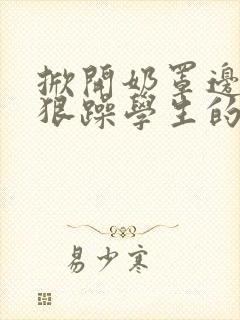 掀開奶罩邊
狠躁學生的
易少寒